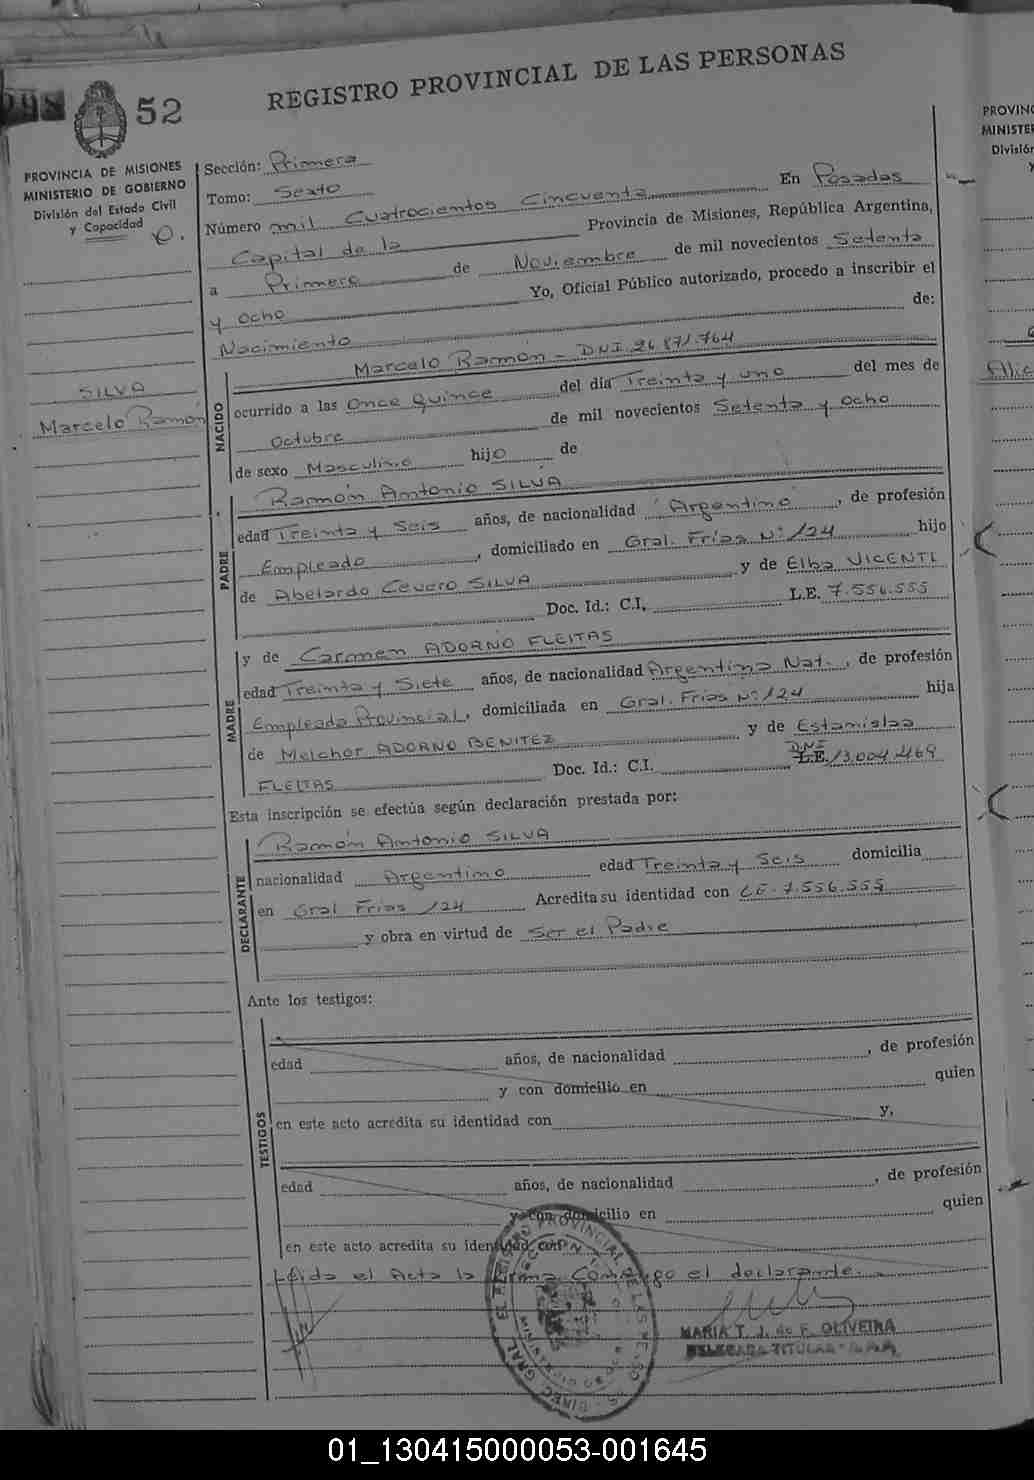 REGISTRO PROVINCIAL DE LAS PERSONAS
298
52
PROVINCIA DE MISIONES
MINISTERIO DE GOBIERNO
División del Estado Civil
y Capacidad
SILVA
Marcelo Ramón
Sección: Primera
Tomo: Sexto
Número mil Cuatrocientos Cincuenta En Posadas
Capital de la Provincia de Misiones, República Argentina,
a Primero de Noviembre de mil novecientos Setenta
y Ocho Yo, Oficial Público autorizado, procedo a inscribir el
Nacimiento de:
NACIDO
Marcelo Ramón - DNI. 26.871.764
ocurrido a las Once Quince del día Treinta y uno del mes de
Octubre de mil novecientos Setenta y Ocho
de sexo Masculino hijo de
PADRE
Ramón Antonio SILVA
edad Treinta y Seis años, de nacionalidad Argentino, de profesión
Empleado, domiciliado en Gral. Frías Nº 124 hijo
de Abelardo Cevero SILVA y de Elba VICENTI
Doc. Id.: C.I. L.E. 7.556.555
MADRE
y de Carmen ADORNO FLEITAS
edad Treinta y Siete años, de nacionalidad Argentina Nat., de profesión
Empleada Provincial, domiciliada en Gral. Frias Nº 124 hija
de Melchor ADORNO BENITEZ y de Estamislaa
FLEITAS Doc. Id.: C.I. DNI L.E. 13.004.469
Esta inscripción se efectúa según declaración prestada por:
DECLARANTE
Ramón Antonio SILVA
nacionalidad Argentino edad Treinta y Seis domicilia
en Gral Frias 124 Acredita su identidad con LE. 7.556.555
y obra en virtud de Ser el Padre
Ante los testigos:
TESTIGOS
edad años, de nacionalidad , de profesión
y con domicilio en quien
en este acto acredita su identidad con y,
edad años, de nacionalidad , de profesión
y con domicilio en quien
en este acto acredita su identidad con
Leida el Acta la firma Conmigo el declarante.
MARIA T. J. de F. OLIVEIRA
DELEGADA TITULAR
PROVINC
MINISTER
División
y
01_130415000053-001645